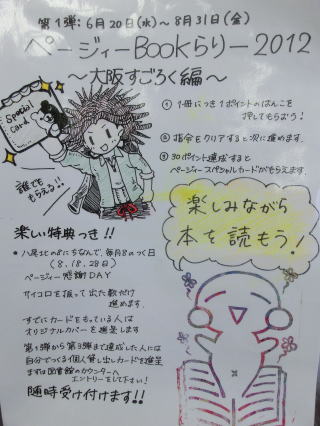 第1弾：6月20日(水)～8月31日(金)
ページィーBookらりー2012
～大阪すごろく編～
Special
Card
誰でも
もらえる!!
① 1冊につき1ポイントのはんこを
押してもらおう!
② 指令をクリアすると次に進めます。
③ 30ポイント達成すると
ページィースペシャルカードがもらえます。
楽しみながら
本を読もう!
楽しい特典つき!!
・八尾北の8にちなんで、毎月8のつく日
(8、18、28日)
ページィー感謝DAY
サイコロを振って出た数だけ
進めます。
すでにカードをもっている人は
オリジナルカバーを進呈します
第1弾から第3弾まで達成した人には
自分でつくる個人貸し出しカードを進呈
まずは図書館のカウンターへ
エントリーをして下さい!
随時受け付けます!!